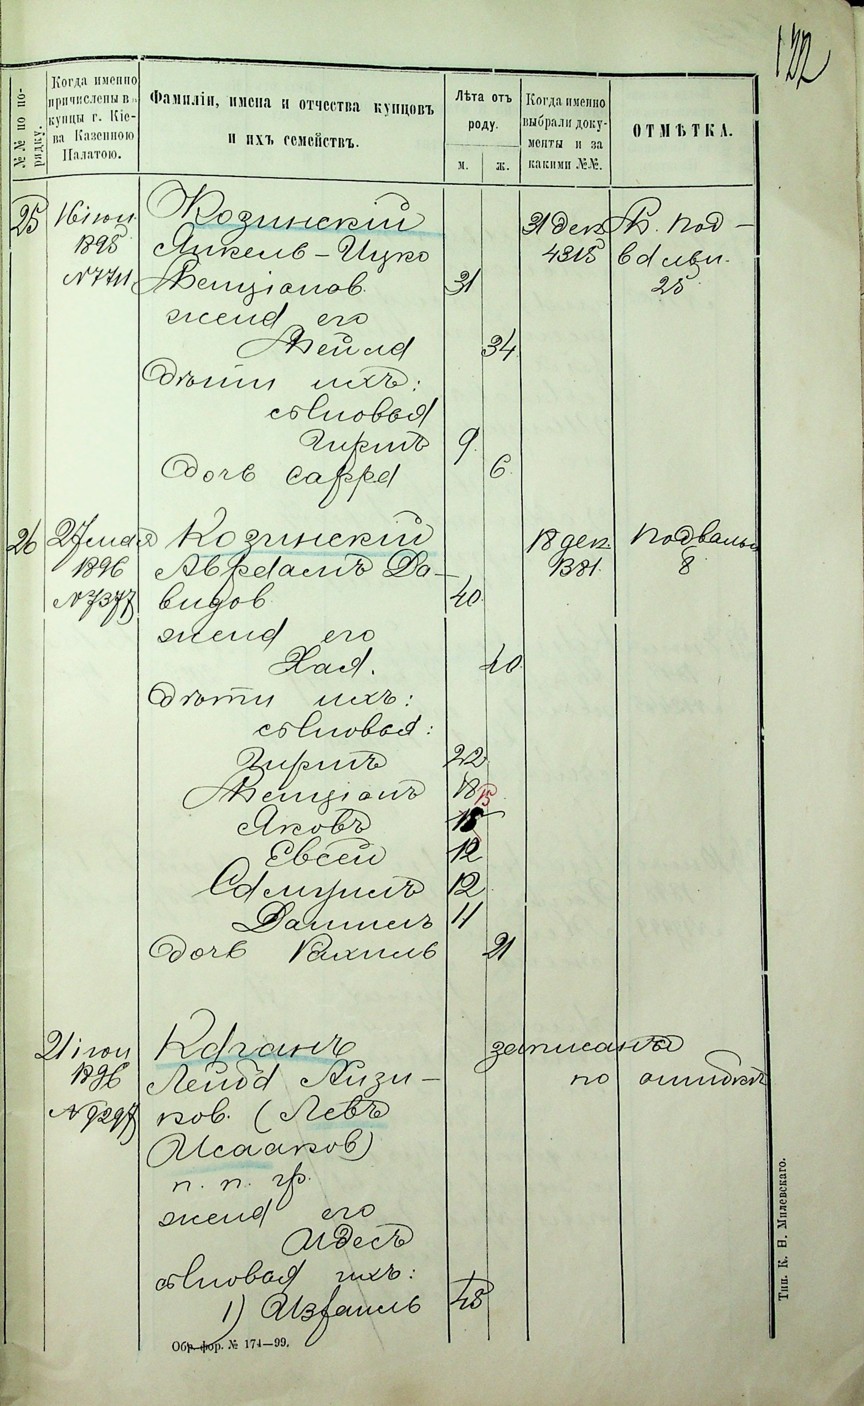 122
№№ по по-
рядку.
Когда именно
причислены в
купцы г. Кіе-
ва Казенною
Палатою.
Фамиліи, имена и отчества купцовъ
и ихъ семействъ.
Лѣта отъ
роду.
м. ж.
Когда именно
выбрали доку-
менты и за
какими №№.
ОТМѢТКА.
25 16 іюн Козинскій 31 дек Б. Под-
1895 Янкель-Ицко 4315 вальн.
N 7711 Бенціонов 31 25
жена его
Бейла 34
Дѣти ихъ:
сыновья
Гиршъ 9
Дочь Сарра 6
26 27 мая Козинскій 18 дек Подвальн
1896 Авраамъ Да- 1381 8
N 7377 видов 40
жена его
Хая. 40
Дѣти ихъ:
сыновья:
Гиршъ 22
Бенціонъ 18
Яковъ 15 15
Евсей 12
Самуилъ 12
Даниилъ 11
Дочь Рахиль 21
21 іюн Каганъ записанъ
1896 Лейба Айзи- по ошибкѣ
N 9297 ков. (Левъ
Исааков)
п. п. гр.
жена его
Идесъ
сыновья ихъ:
1) Израиль 18
Обр. фор. № 174—99.
Тип. К. Н. Милевскаго.